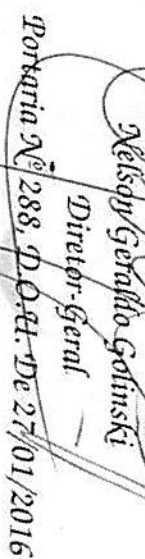 Nelson Geraldo Golinski
Diretor-Geral
Portaria Nº 288, D.O.U. De 27/01/2016